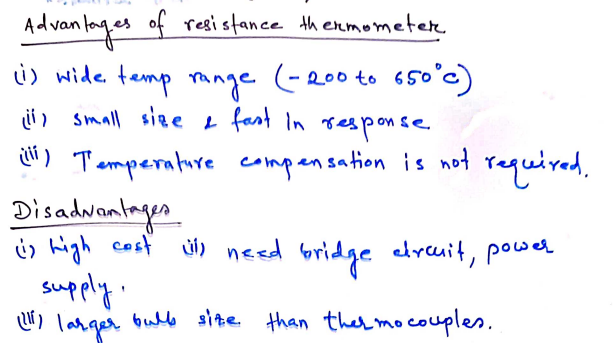 Advantages of resistance thermometer
(i) wide temp range (-200 to 650°C)
(ii) small size & fast in response
(iii) Temperature compensation is not required.
Disadvantages
(i) high cost (ii) need bridge circuit, power
supply.
(iii) larger bulb size than thermocouples.